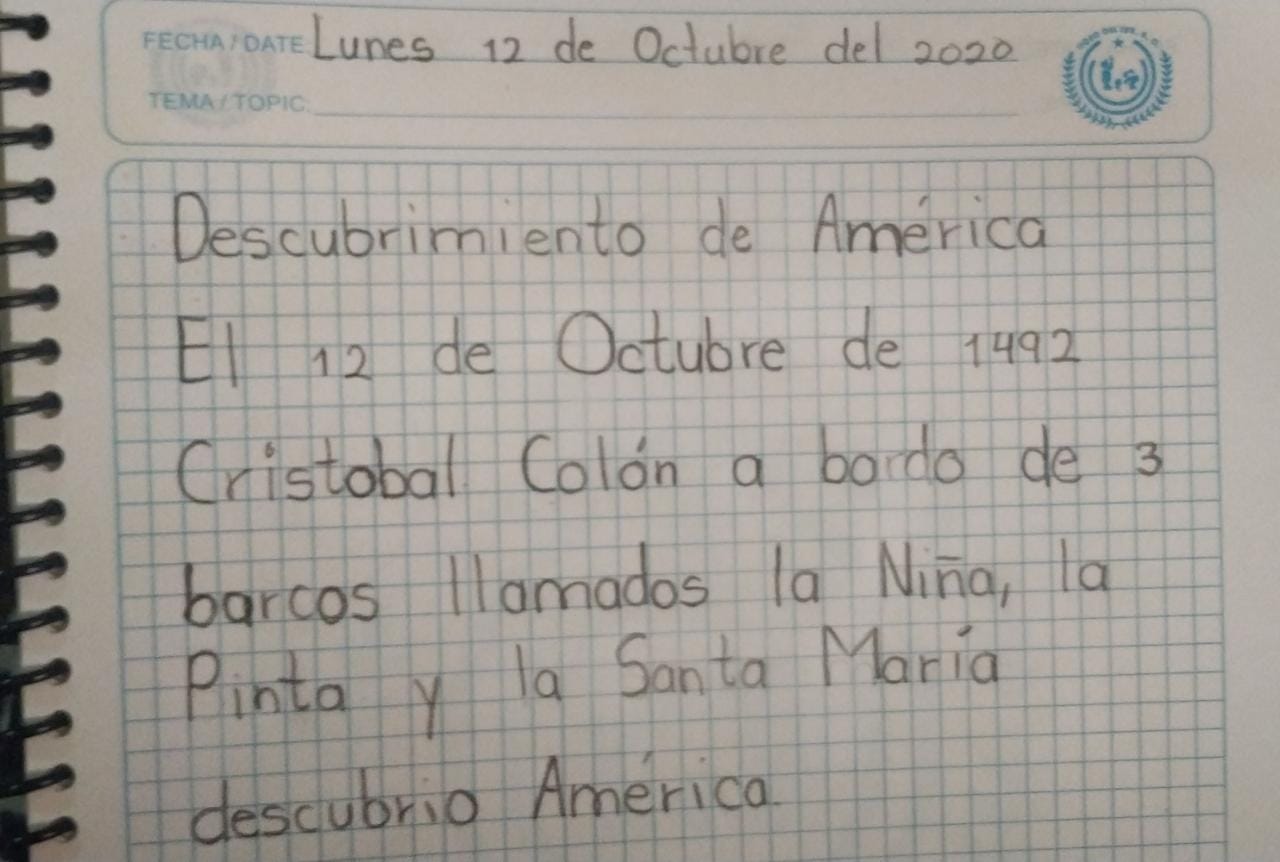 FECHA / DATE Lunes 12 de Octubre del 2020
TEMA / TOPIC:
Descubrimiento de América
El 12 de Octubre de 1492
Cristobal Colón a bordo de 3
barcos llamados la Niña, la
Pinta y la Santa María
descubrio América.